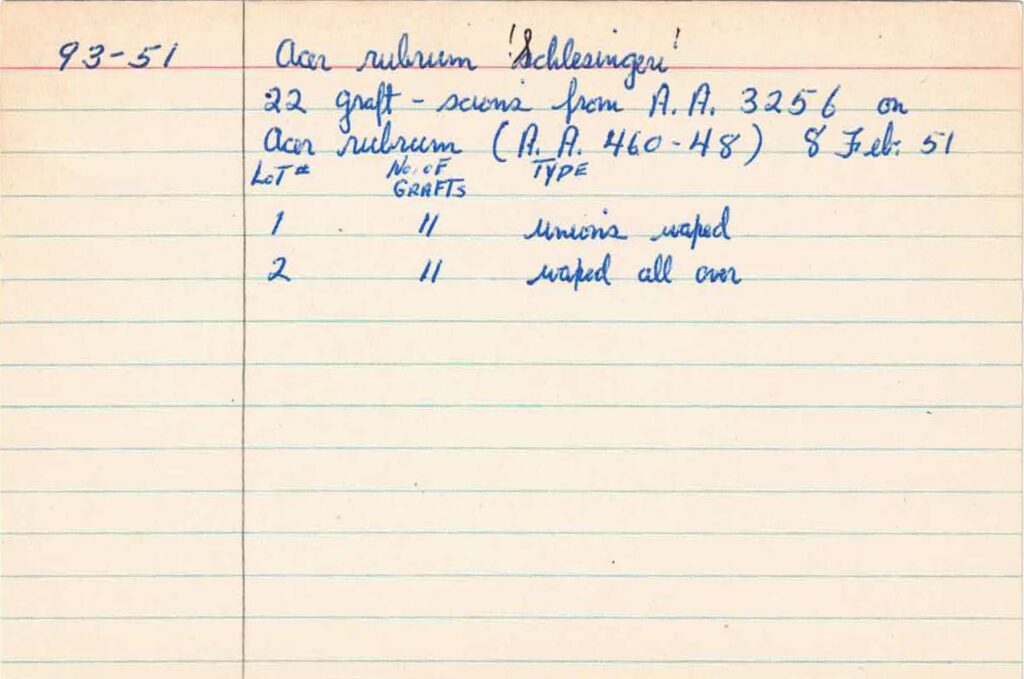 93-51 Acer rubrum 'Schlesingeri'
22 graft - scions from A.A. 3256 on
Acer rubrum (A.A. 460-48) 8 Feb. 51
LOT # NO. OF GRAFTS TYPE
1 11 unions waped
2 11 waped all over